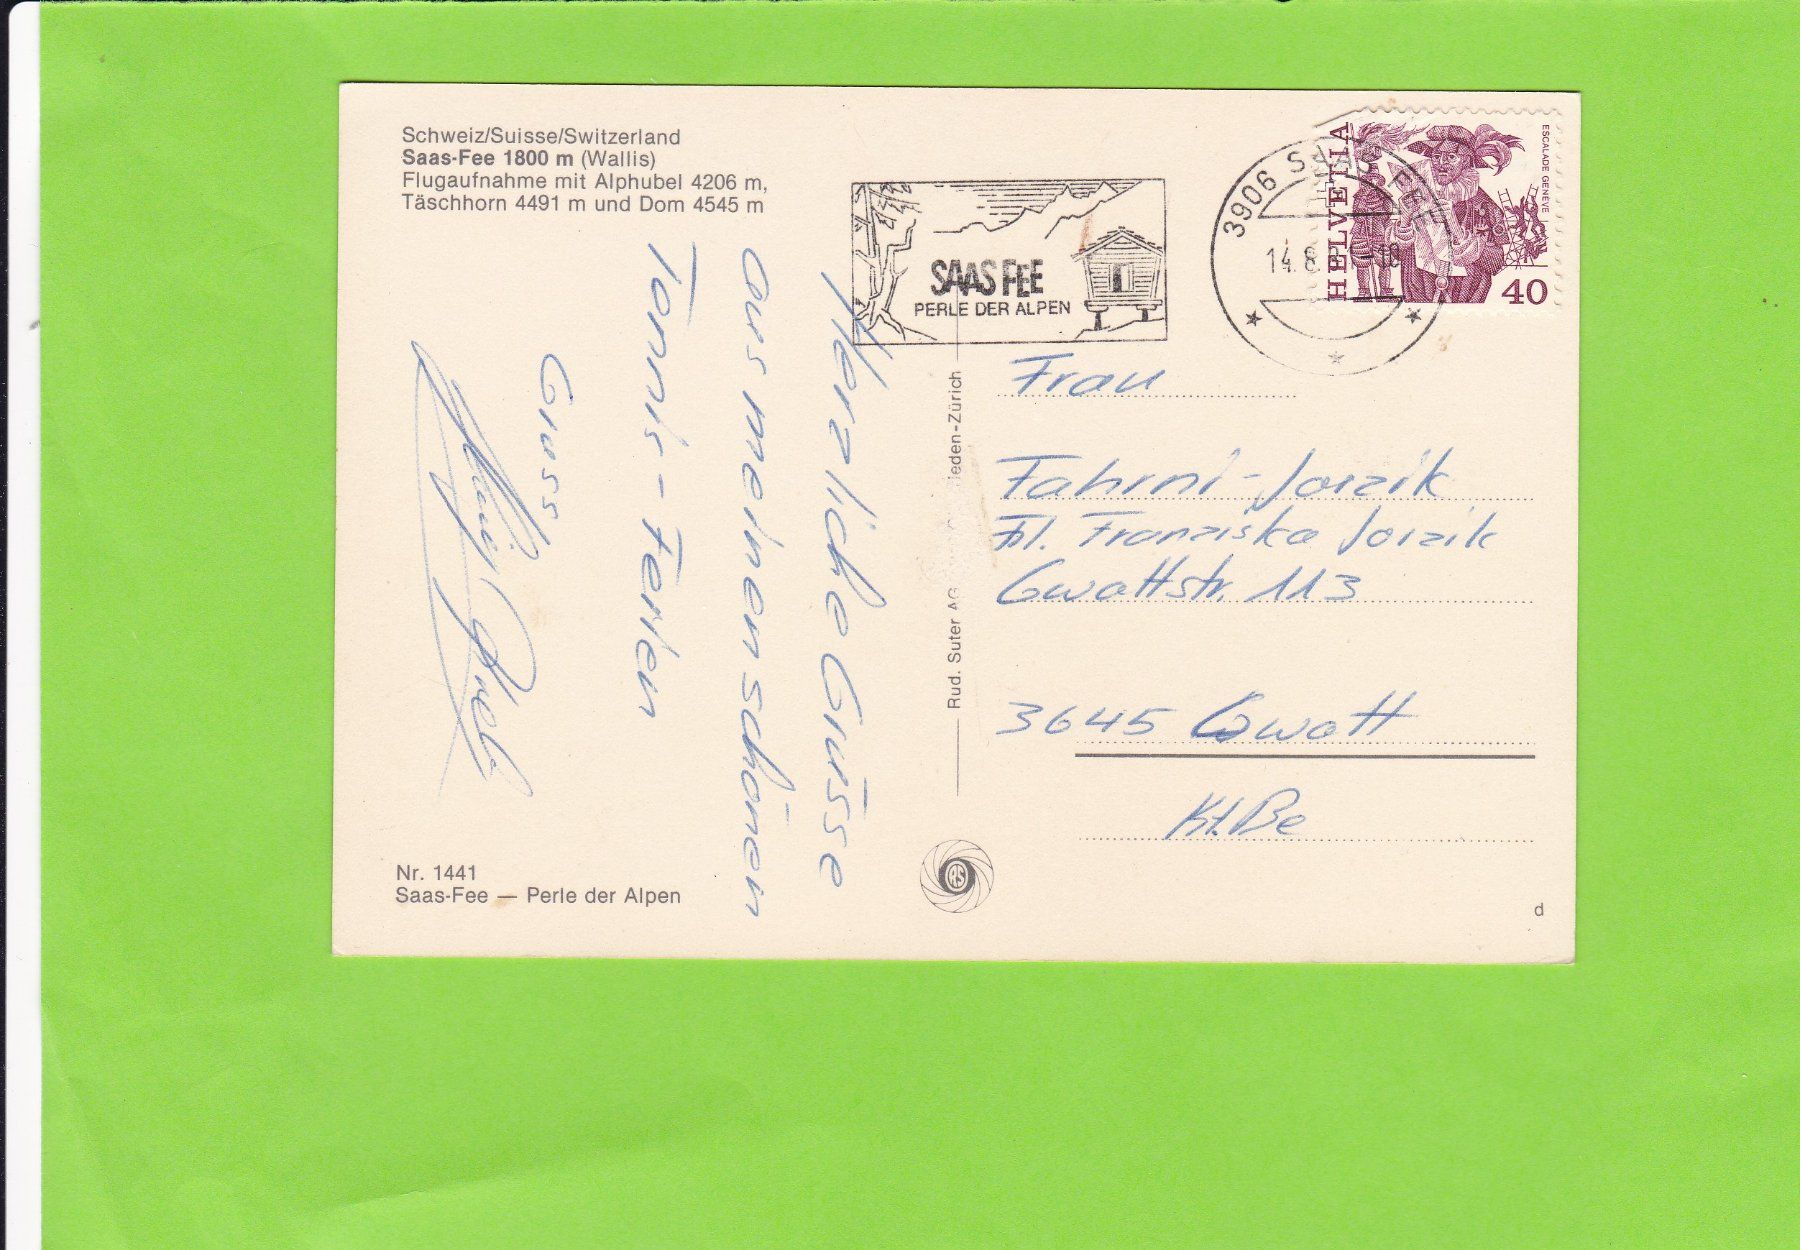 Schweiz/Suisse/Switzerland
Saas-Fee 1800 m (Wallis)
Flugaufnahme mit Alphubel 4206 m,
Täschhorn 4491 m und Dom 4545 m
Herzliche Grüsse
aus meinen schönen
Tennis-Ferien
Gruss
Nr. 1441
Saas-Fee — Perle der Alpen
Rud. Suter AG
ieden-Zürich
RS
SAAS FEE
PERLE DER ALPEN
3906 SAAS-FEE
14.8. -18
HELVETIA
ESCALADE GENÈVE
40
Frau
Fahrni-Jorzik
Fl. Franziska Jorzik
Gwattstr. 113
3645 Gwatt
Kt. Be
d